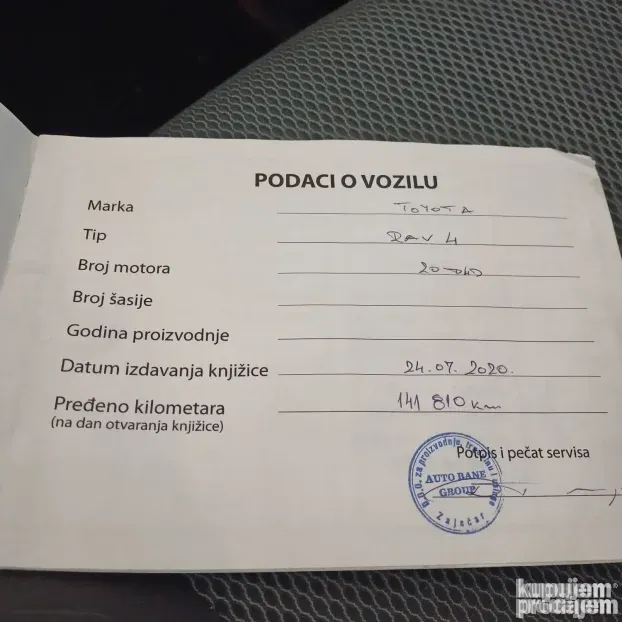 PODACI O VOZILU
Marka TOYOTA
Tip RAV 4
Broj motora
Broj šasije
Godina proizvodnje
Datum izdavanja knjižice 24.07.2020.
Pređeno kilometara 141 810 km
(na dan otvaranja knjižice)
Potpis i pečat servisa
D.O.O. za proizvodnju, trgovinu i usluge
AUTO RANE
GROUP
Zaječar
kupujem
prodajem